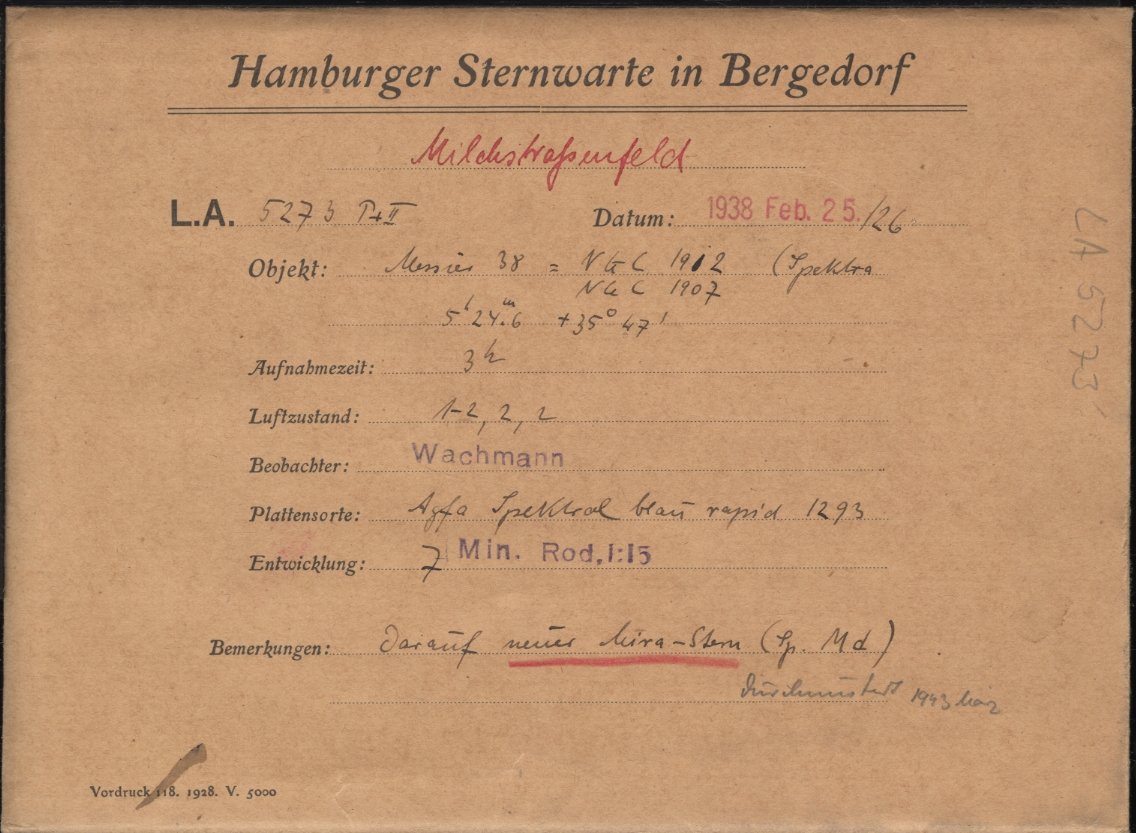 Hamburger Sternwarte in Bergedorf
Milchstraßenfeld
L.A. 5273 P+II Datum: 1938 Feb. 25./26.
Objekt: Messier 38 = NGC 1912 (Spektra
NGC 1907
5h 24m.6 +35° 47'
Aufnahmezeit: 3h
Luftzustand: 1-2, 2, 2
Beobachter: Wachmann
Plattensorte: Agfa Spektral blau rapid 1293
Entwicklung: 7 Min. Rod, 1:15
Bemerkungen: Darauf neuer Mira-Stern (Sp. Md)
Durchmustert 1943 März
Vordruck 118. 1928. V. 5000
LA 5273